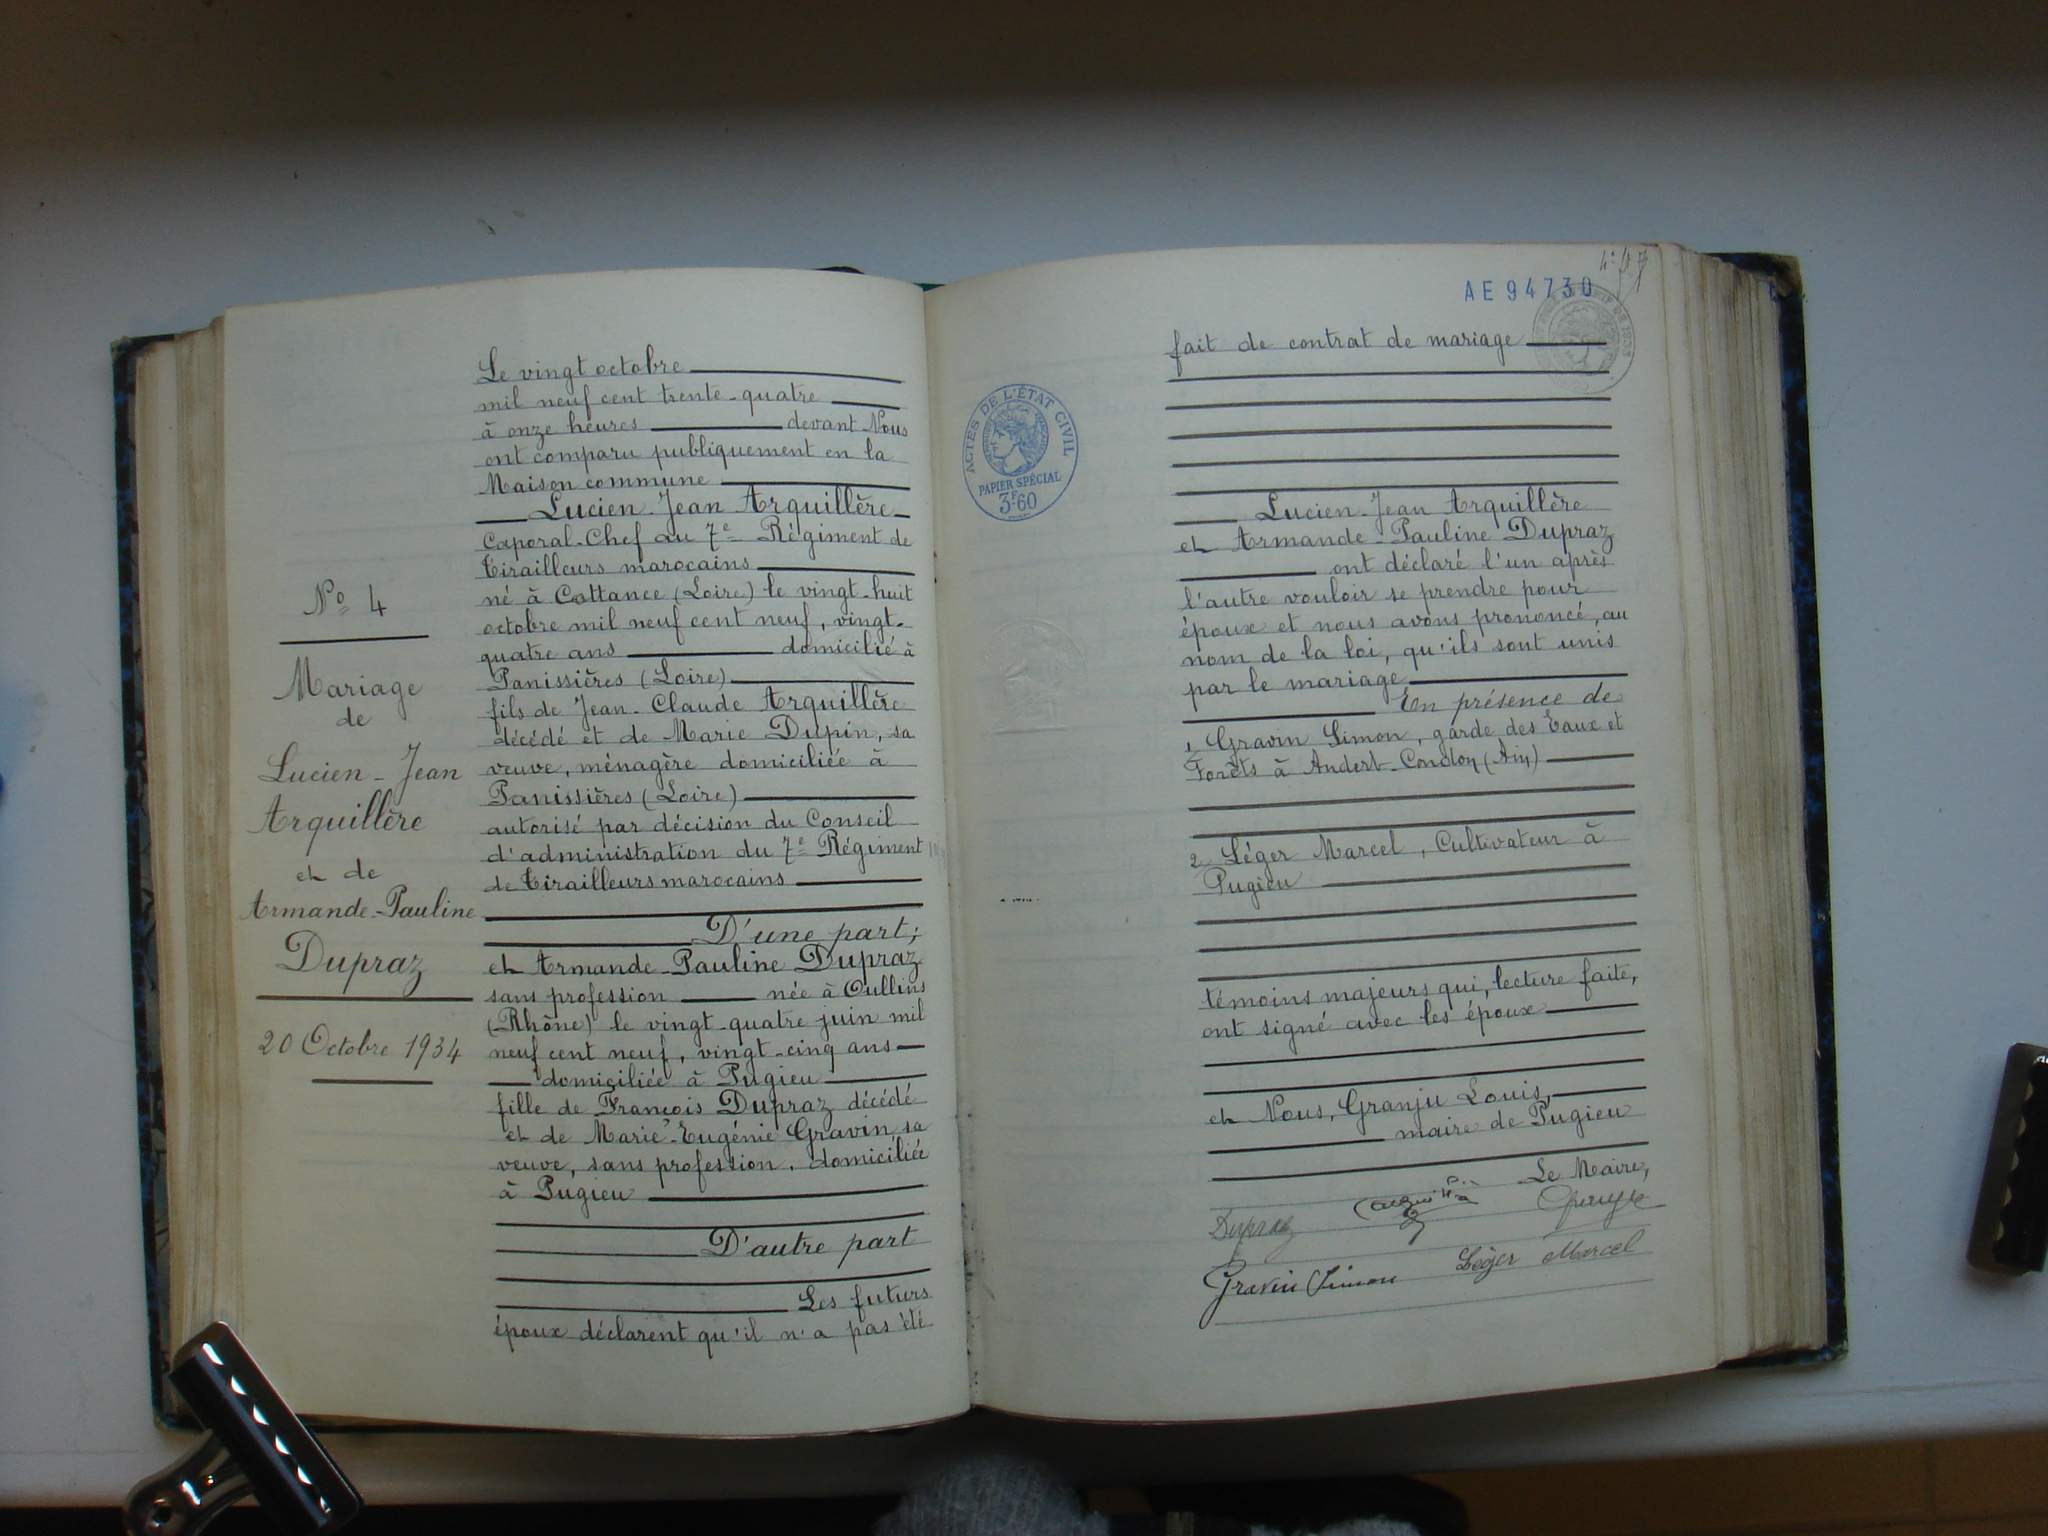 N° 4
Mariage
de
Lucien-Jean
Arquillère
et de
Armande-Pauline
Dupraz
20 Octobre 1934
Le vingt octobre
mil neuf cent trente-quatre
à onze heures devant Nous
ont comparu publiquement en la
Maison commune
Lucien-Jean Arquillère
Caporal-Chef au 7e Régiment de
Tirailleurs marocains
né à Cottance (Loire) le vingt-huit
octobre mil neuf cent neuf, vingt-
quatre ans domicilié à
Panissières (Loire)
fils de Jean-Claude Arquillère
décédé et de Marie Dupin, sa
veuve, ménagère domiciliée à
Panissières (Loire)
autorisé par décision du Conseil
d'administration du 7e Régiment
de Tirailleurs marocains
D'une part;
et Armande-Pauline Dupraz
sans profession née à Oullins
(Rhône) le vingt-quatre juin mil
neuf cent neuf, vingt-cinq ans
domiciliée à Pugieu
fille de François Dupraz décédé
et de Marie-Eugénie Gravin, sa
veuve, sans profession, domiciliée
à Pugieu
D'autre part
Les futurs
époux déclarent qu'il n'a pas été
AE 94730
ACTES DE L'ÉTAT CIVIL
PAPIER SPÉCIAL
3F60
fait de contrat de mariage
Lucien-Jean Arquillère
et Armande-Pauline Dupraz
ont déclaré l'un après
l'autre vouloir se prendre pour
époux et nous avons prononcé, au
nom de la loi, qu'ils sont unis
par le mariage
En présence de
1, Gravin Simon, garde des Eaux et
Forêts à Andert-Condon (Ain)
2 Léger Marcel, Cultivateur à
Pugieu
témoins majeurs qui, lecture faite,
ont signé avec les époux
et Nous, Granju Louis,
maire de Pugieu
Le Maire,
Dupraz
Gravin Simon Léger Marcel